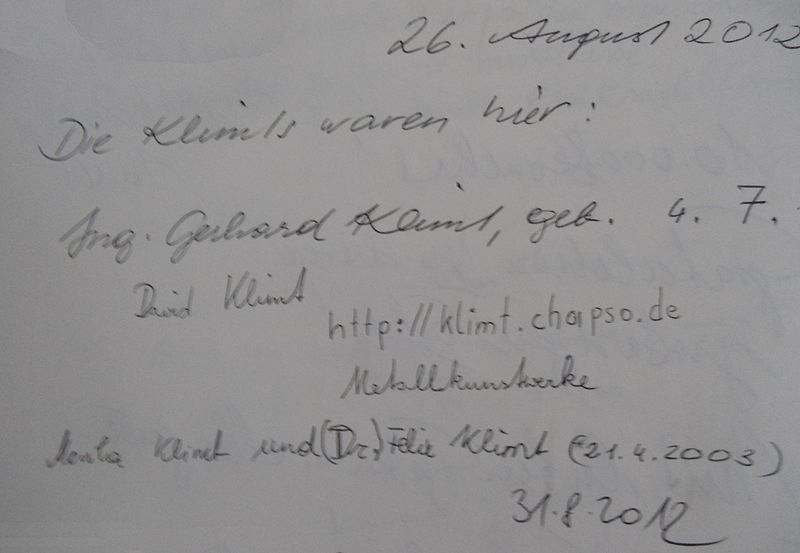 26. August 2012
Die Klimts waren hier:
Ing. Gerhard Klimt, geb. 4. 7.
David Klimt
http://klimt.chapso.de
Metallkunstwerke
Klimt und (Dr.) Felix Klimt (*21.4.2003)
31.8.2012